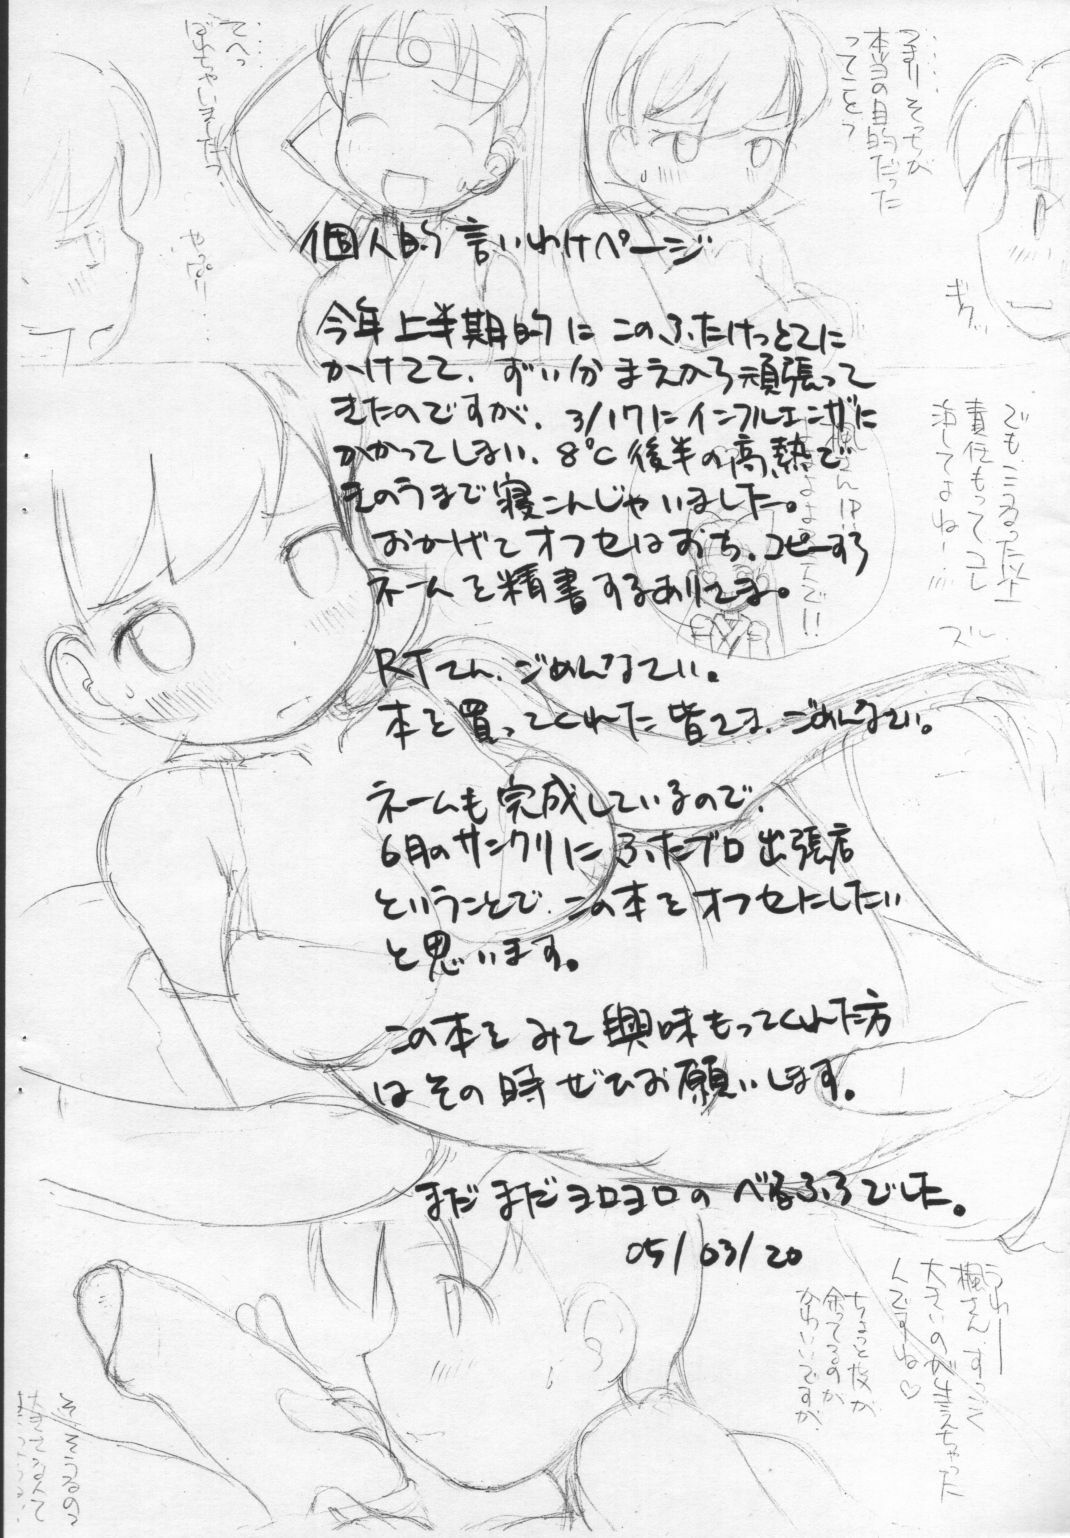 個人的言いわけページ
今年上半期的にこのふたけっとさに
かけてて、ずい分まえから頑張って
きたのですが、3/17にインフルエンザに
かかってしまい、8℃後半の高熱で
きのうまで寝こんじゃいました。
おかげさオフセはおち、コピーすら
ネームを精書するありさま。
RTさん、ごめんなさい。
本を買ってくれた皆さま、ごめんなさい。
ネームも完成しているので、
6月のサンクリにふたプロ出張店
ということで、この本をオフセにしたい
と思います。
この本をみて興味もってくれた方
はその時ぜひお願いします。
まだまだヨロヨロのべるふろでした。
05/03/20
つまりそっちが
本当の目的だった
ってことっ
ギクッ
責任もってコレ
うわー
楓さん、すっごく
大きいのが生えちゃった
んですね♡
ちょっと皮が
余ってるのが
かわいいですが